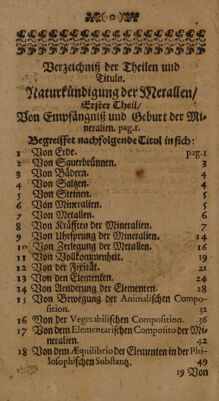 (o)
Verzeichniß der Theilen und
Tituln.
Naturkündigung der Metallen/
Erster Theil/
Von Empfängniß und Geburt der Mi-
neralien. pag. 1.
Begreiffet nachfolgende Titul in sich:
1 Von Erde. pag. 1
2 Von Sauerbrünnen. 3
3 Von Bädern. 4
4 Von Saltzen. 4
5 Von Steinen. 5
6 Von Mineralien. 5
7 Von Metallen. 6
8 Von Kräfften der Mineralien. 7
9 Von Uhrsprung der Mineralien. 14
10 Von Zerlegung der Metallen. 16
11 Von Vollkommenheit. 19
12 Von der Fixität. 21
13 Von den Elementen. 24
14 Von Aenderung der Elementen. 28
15 Von Bewegung der Animalischen Compo-
sition. 32
16 Von der Vegetabilischen Composition. 36
17 Von dem Elementarischen Composito der Mi-
neralien. 42
18 Von dem Æquilibrio der Elementen in der Phi-
losophischen Substantz. 49
19 Von